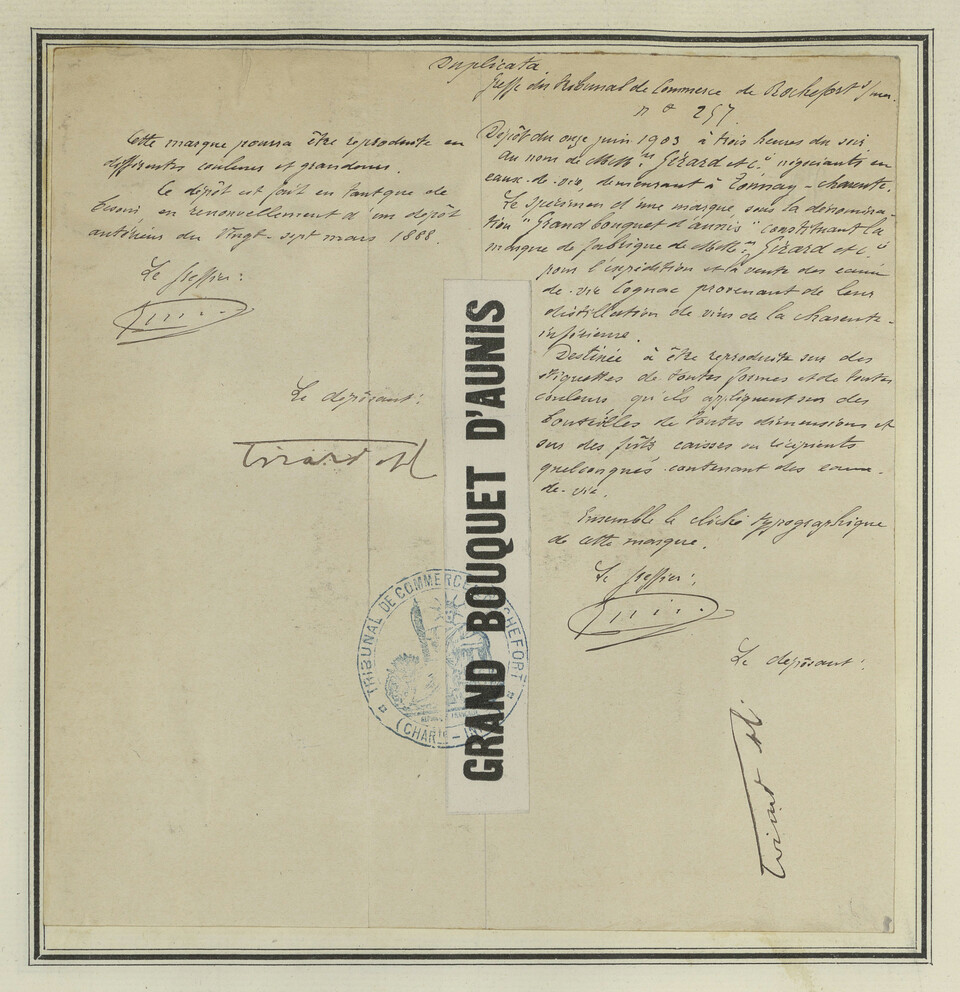 Duplicata
Greffe du Tribunal de Commerce de Rochefort s/mer.
n° 257
Dépôt du onze juin 1903 à trois heures du soir
au nom de MM.rs Girard et C.ie négociants en
eaux-de-vie, demeurant à Tonnay-charente.
Le spécimen d'une marque sous la dénomina-
tion "Grand bouquet d'aunis" constituant la
marque de fabrique de MM.rs Girard et C.ie
pour l'expédition et la vente des eaux
de-vie Cognac provenant de leur
distillation de vins de la charente-
inférieure.
Destinée à être reproduite sur des
étiquettes de toutes formes et de toutes
couleurs qu'ils appliquent sur des
bouteilles de toutes dimensions et
sur des fûts, caisses ou récipients
quelconques contenant des eaux-
de-vie.
Ensemble le cliché typographique
de cette marque.
Le greffier:
Le déposant:
Cette marque pourra être reproduite en
différentes couleurs et grandeurs.
Ce dépôt est fait en tant que de
besoin, en renouvellement d'un dépôt
antérieur du vingt-sept mars 1888.
Le greffier:
Le déposant:
GRAND BOUQUET D'AUNIS
TRIBUNAL DE COMMERCE
CHEFORT
(CHAR.TE - IN